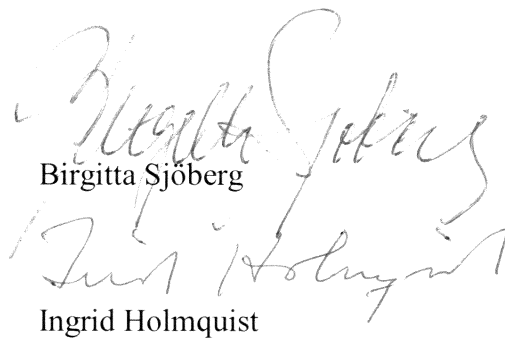 Birgitta Sjöberg
Birgitta Sjöberg
Holmquist
Ingrid Holmquist